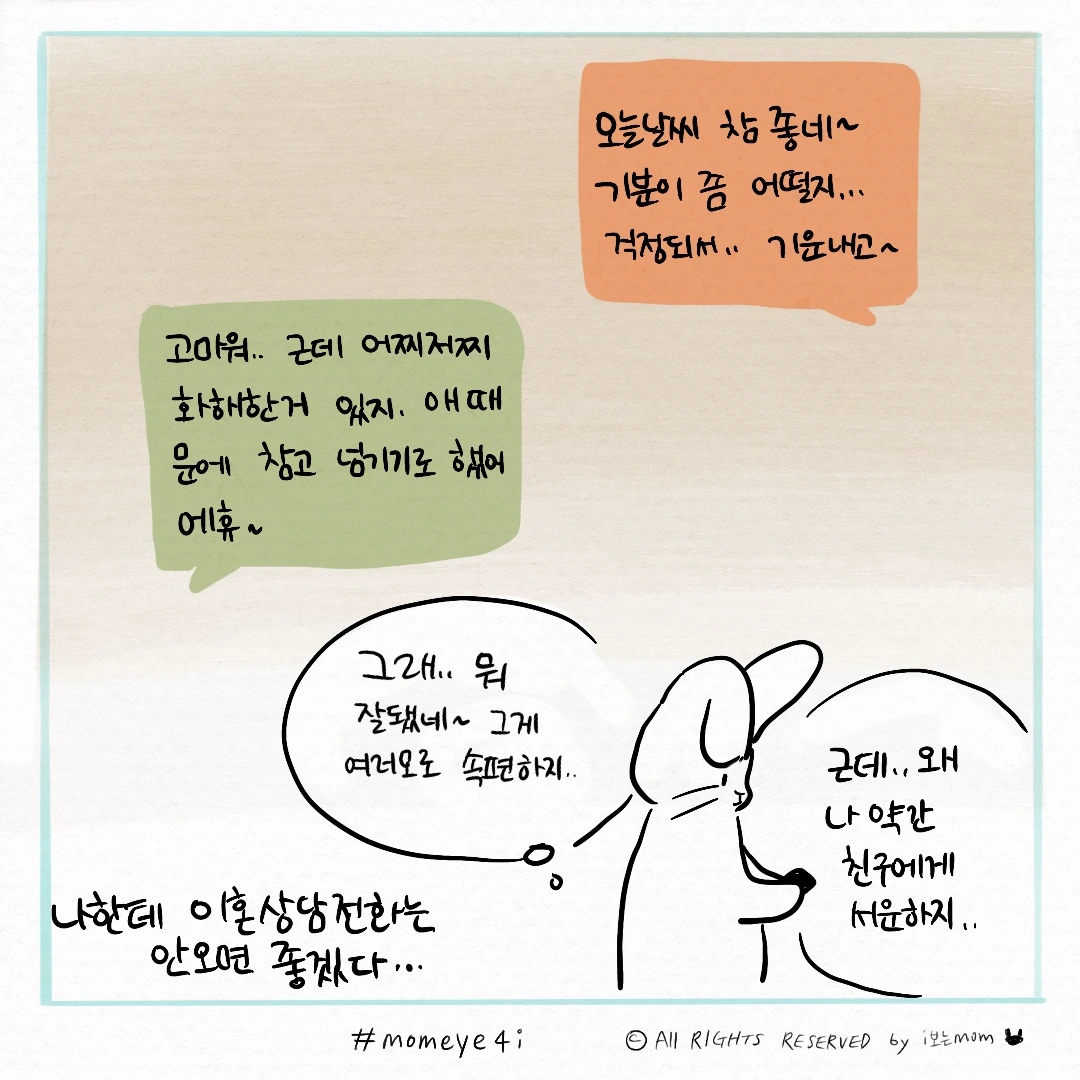 오늘날씨 참 좋네~
기분이 쫌 어떨지...
걱정되서.. 기운내고~
고마워.. 근데 어찌저찌
화해한거 있지. 애때
문에 참고 넘기기로 했어
에휴~
그래.. 뭐
잘됐네~ 그게
여러모로 속편하지..
근데.. 왜
나 약간
친구에게
서운하지..
나한테 이혼상담전화는
안오면 좋겠다...
#momeye4i
© All RIGHTS RESERVED by i보는mom